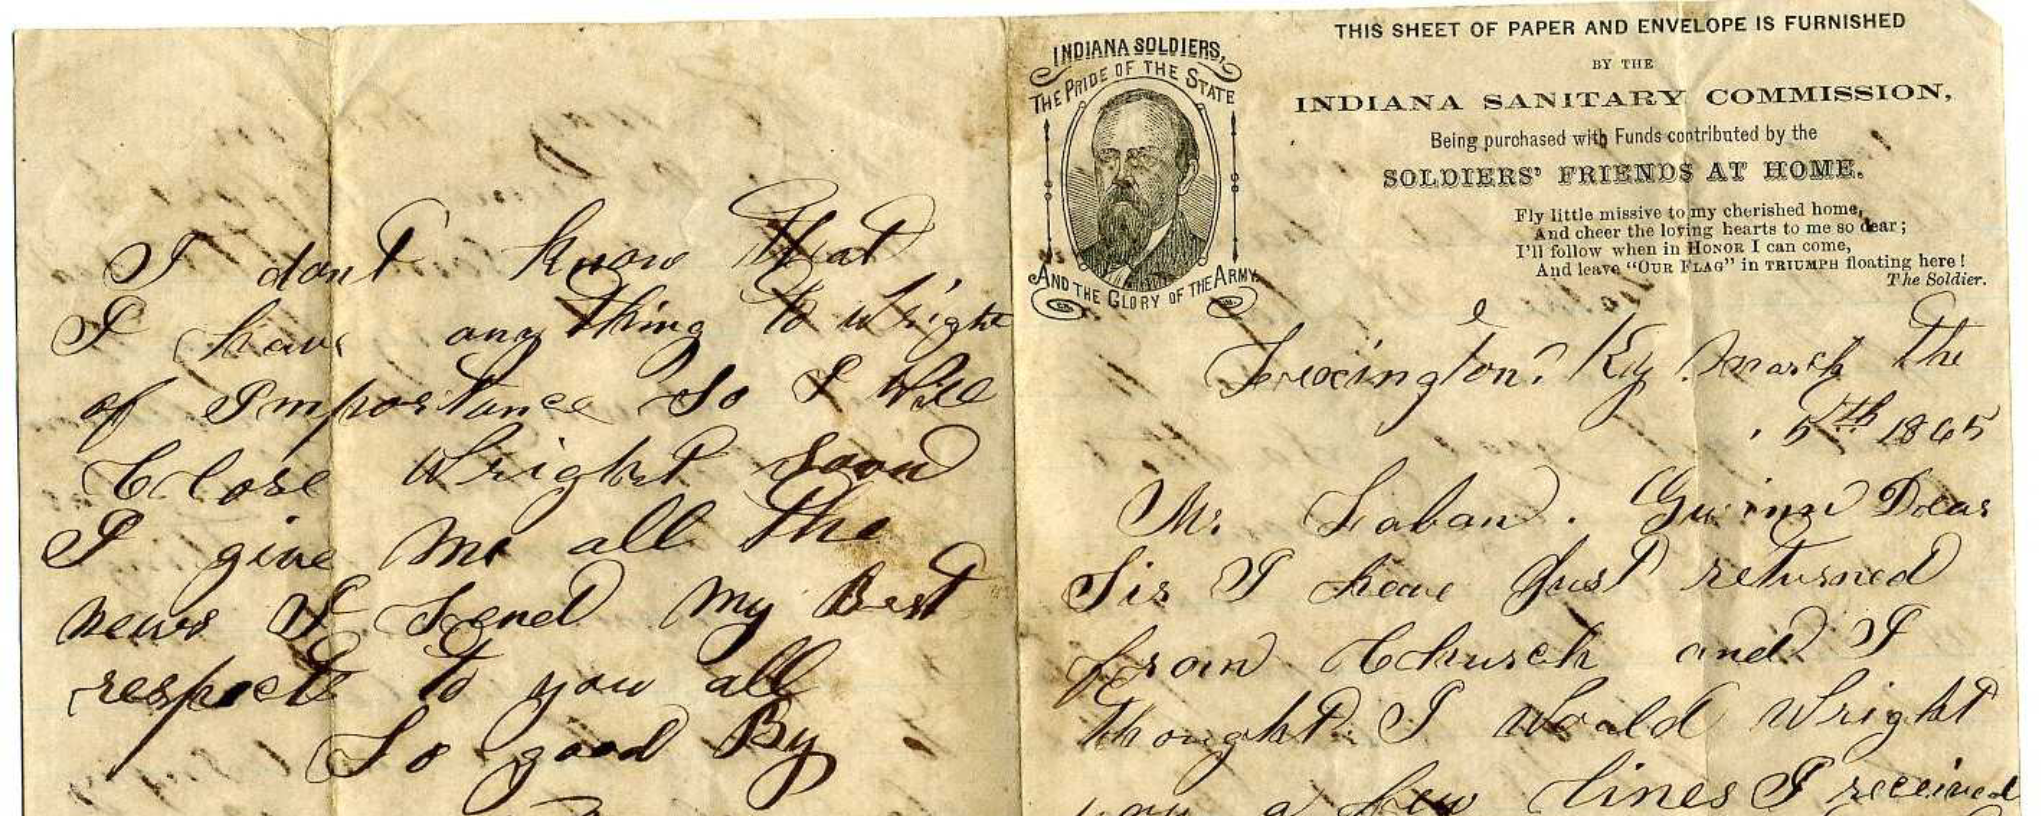 I dont know that
I have any thing to wright
of Importance so I will
Close wright soon
I give me all the
news I send my Best
respects to you all
So good By
INDIANA SOLDIERS,
THE PRIDE OF THE STATE
AND THE GLORY OF THE ARMY.
THIS SHEET OF PAPER AND ENVELOPE IS FURNISHED
BY THE
INDIANA SANITARY COMMISSION,
Being purchased with Funds contributed by the
SOLDIERS' FRIENDS AT HOME.
Fly little missive to my cherished home,
And cheer the loving hearts to me so dear;
I'll follow when in HONOR I can come,
And leave "OUR FLAG" in TRIUMPH floating here!
The Soldier.
Lexington. Ky March the
5th 1865
Mr. Laban. Dear
Sir I have Just returned
from Church and I
thought I would wright
you a few lines I received